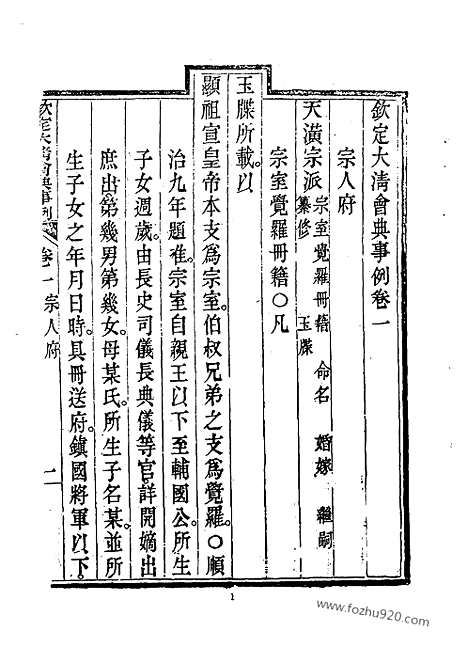 欽定大清會典事例卷一
宗人府
天潢宗派 宗室覺羅冊籍 命名 婚嫁 繼嗣
纂修 玉牒
宗室覺羅冊籍○凡
玉牒所載。以
顯祖宣皇帝本支爲宗室。伯叔兄弟之支爲覺羅。○順
治九年題准。宗室自親王以下至輔國公。所生
子女週歲。由長史司儀長典儀等官。詳開嫡出
庶出。第幾男第幾女。母某氏。所生子名某。並所
生子女之年月日時。具冊送府。鎭國將軍以下。
欽定大清會典事例 卷一 宗人府 一
1
www.fozhu920.com